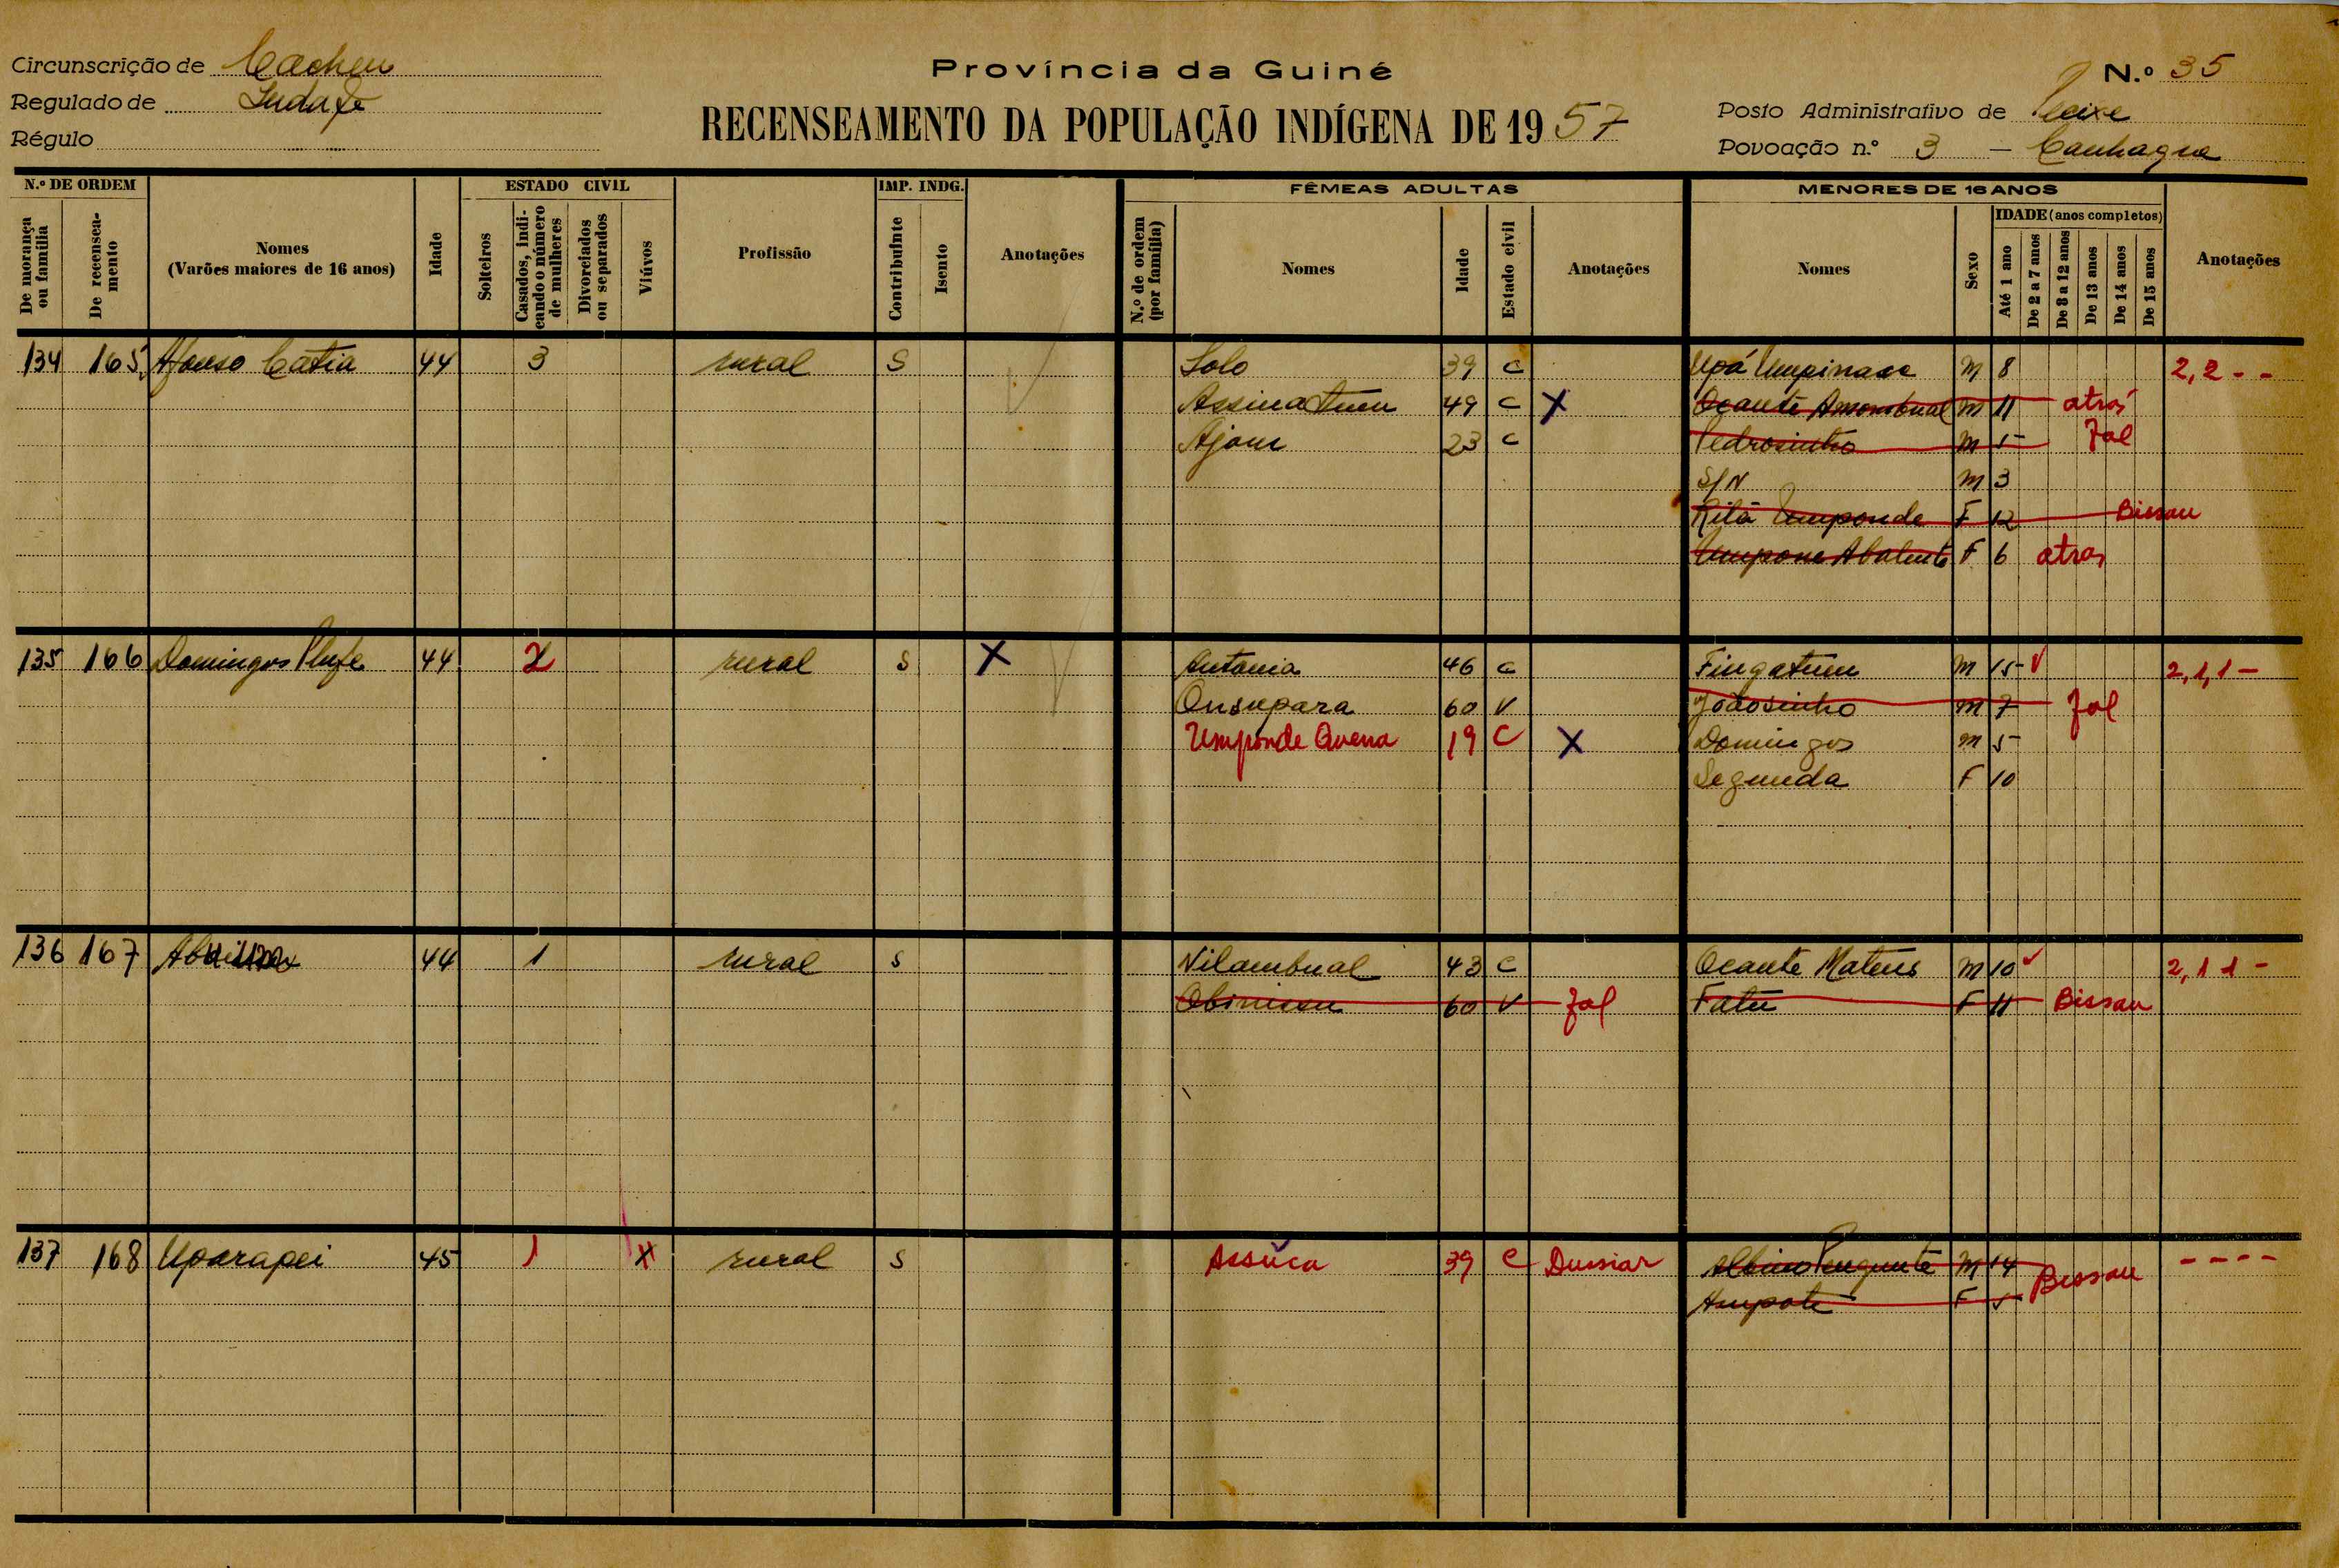 Província da Guiné
Circunscrição de Cacheu
N.º 35
Regulado de
Posto Administrativo de
RECENSEAMENTO DA POPULAÇÃO INDÍGENA DE 1957
Régulo
Povoação n.º 3 —
N.º DE ORDEM
ESTADO CIVIL
IMP. INDG.
FÊMEAS ADULTAS
MENORES DE 16 ANOS
De morança ou família
De recenseamento
Nomes
(Varões maiores de 16 anos)
Idade
Solteiros
Casados, indicando o número de mulheres
Divorciados ou separados
Viúvos
Profissão
Contribuinte
Isento
Anotações
N.º de ordem (por família)
Nomes
Idade
Estado civil
Anotações
Nomes
Sexo
IDADE (anos completos)
Até 1 ano
De 2 a 7 anos
De 8 a 12 anos
De 13 anos
De 14 anos
De 15 anos
Anotações
134 165 Afonso Catia 44 3 rural S Solo 39 C Upá M 8 2,2 - -
49 C X Ocante Amombual M 11 atrás
Ajom 23 C Pedrosinho M 5 Fal
S/N M 3
F 12 Bissau
F 6 atras
135 166 Domingos 44 2 rural S X Antonia 46 C Fingatum M 15 ✓ 2,1,1 -
Onsupara 60 V Joãosinho M 7 Fal
Umponde Quena 19 C X Domingos M 5
Segunda F 10
136 167 44 1 rural S Vilambual 43 C Ocante Mateus M 10 ✓ 2,1 1 -
60 V Fal Fatú F 11 Bissau
137 168 Uparapei 45 1 X rural S Assúca 39 C M 14 Bissau - - - -
Ampote F 5